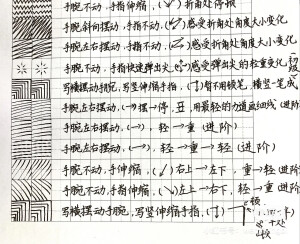 手腕不动,手指伸缩,( )折角处停顿
手腕斜向摆动,手指不动,( )感受折角处角度大小变化
手腕左右摆动,手指不动,( )感受折角处角度大小变化
手腕不动,手指快速弹出尖,( )感受弹出的轻重变化
写横摆动手腕,写竖伸缩手指,( )暂不用顿笔,横竖一笔成
手腕左右摆动,( )摆一停,用最轻的力道画细线(进阶)
手腕左右摆动,(→),轻→重(进阶)
手腕左右摆动,(→),重→轻(进阶)
手腕不动,手伸缩,( )右上→左下,重→轻(进阶)
手腕不动,手指伸缩,( )左上→右下,轻(进阶)
写横摆动手腕,写竖伸缩手指,( )